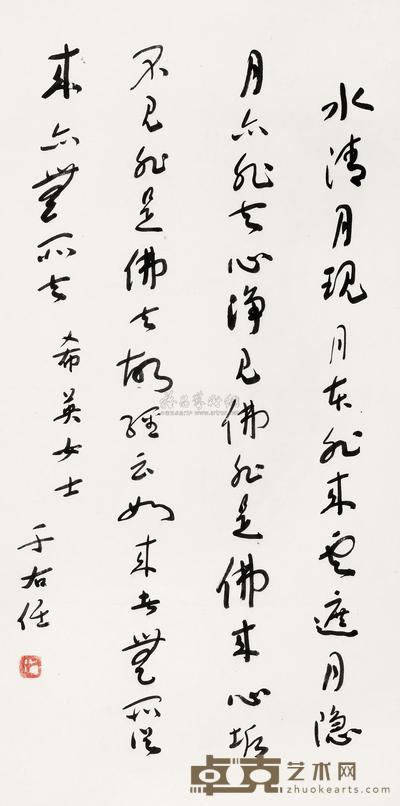 水清月現月本非來雲遮月隱
月亦非去心淨見佛非是佛來心垢
不見非是佛去故經云如來者無所從
來亦無所去 希英女士 于右任
卓克艺术网
zhuokearts.com